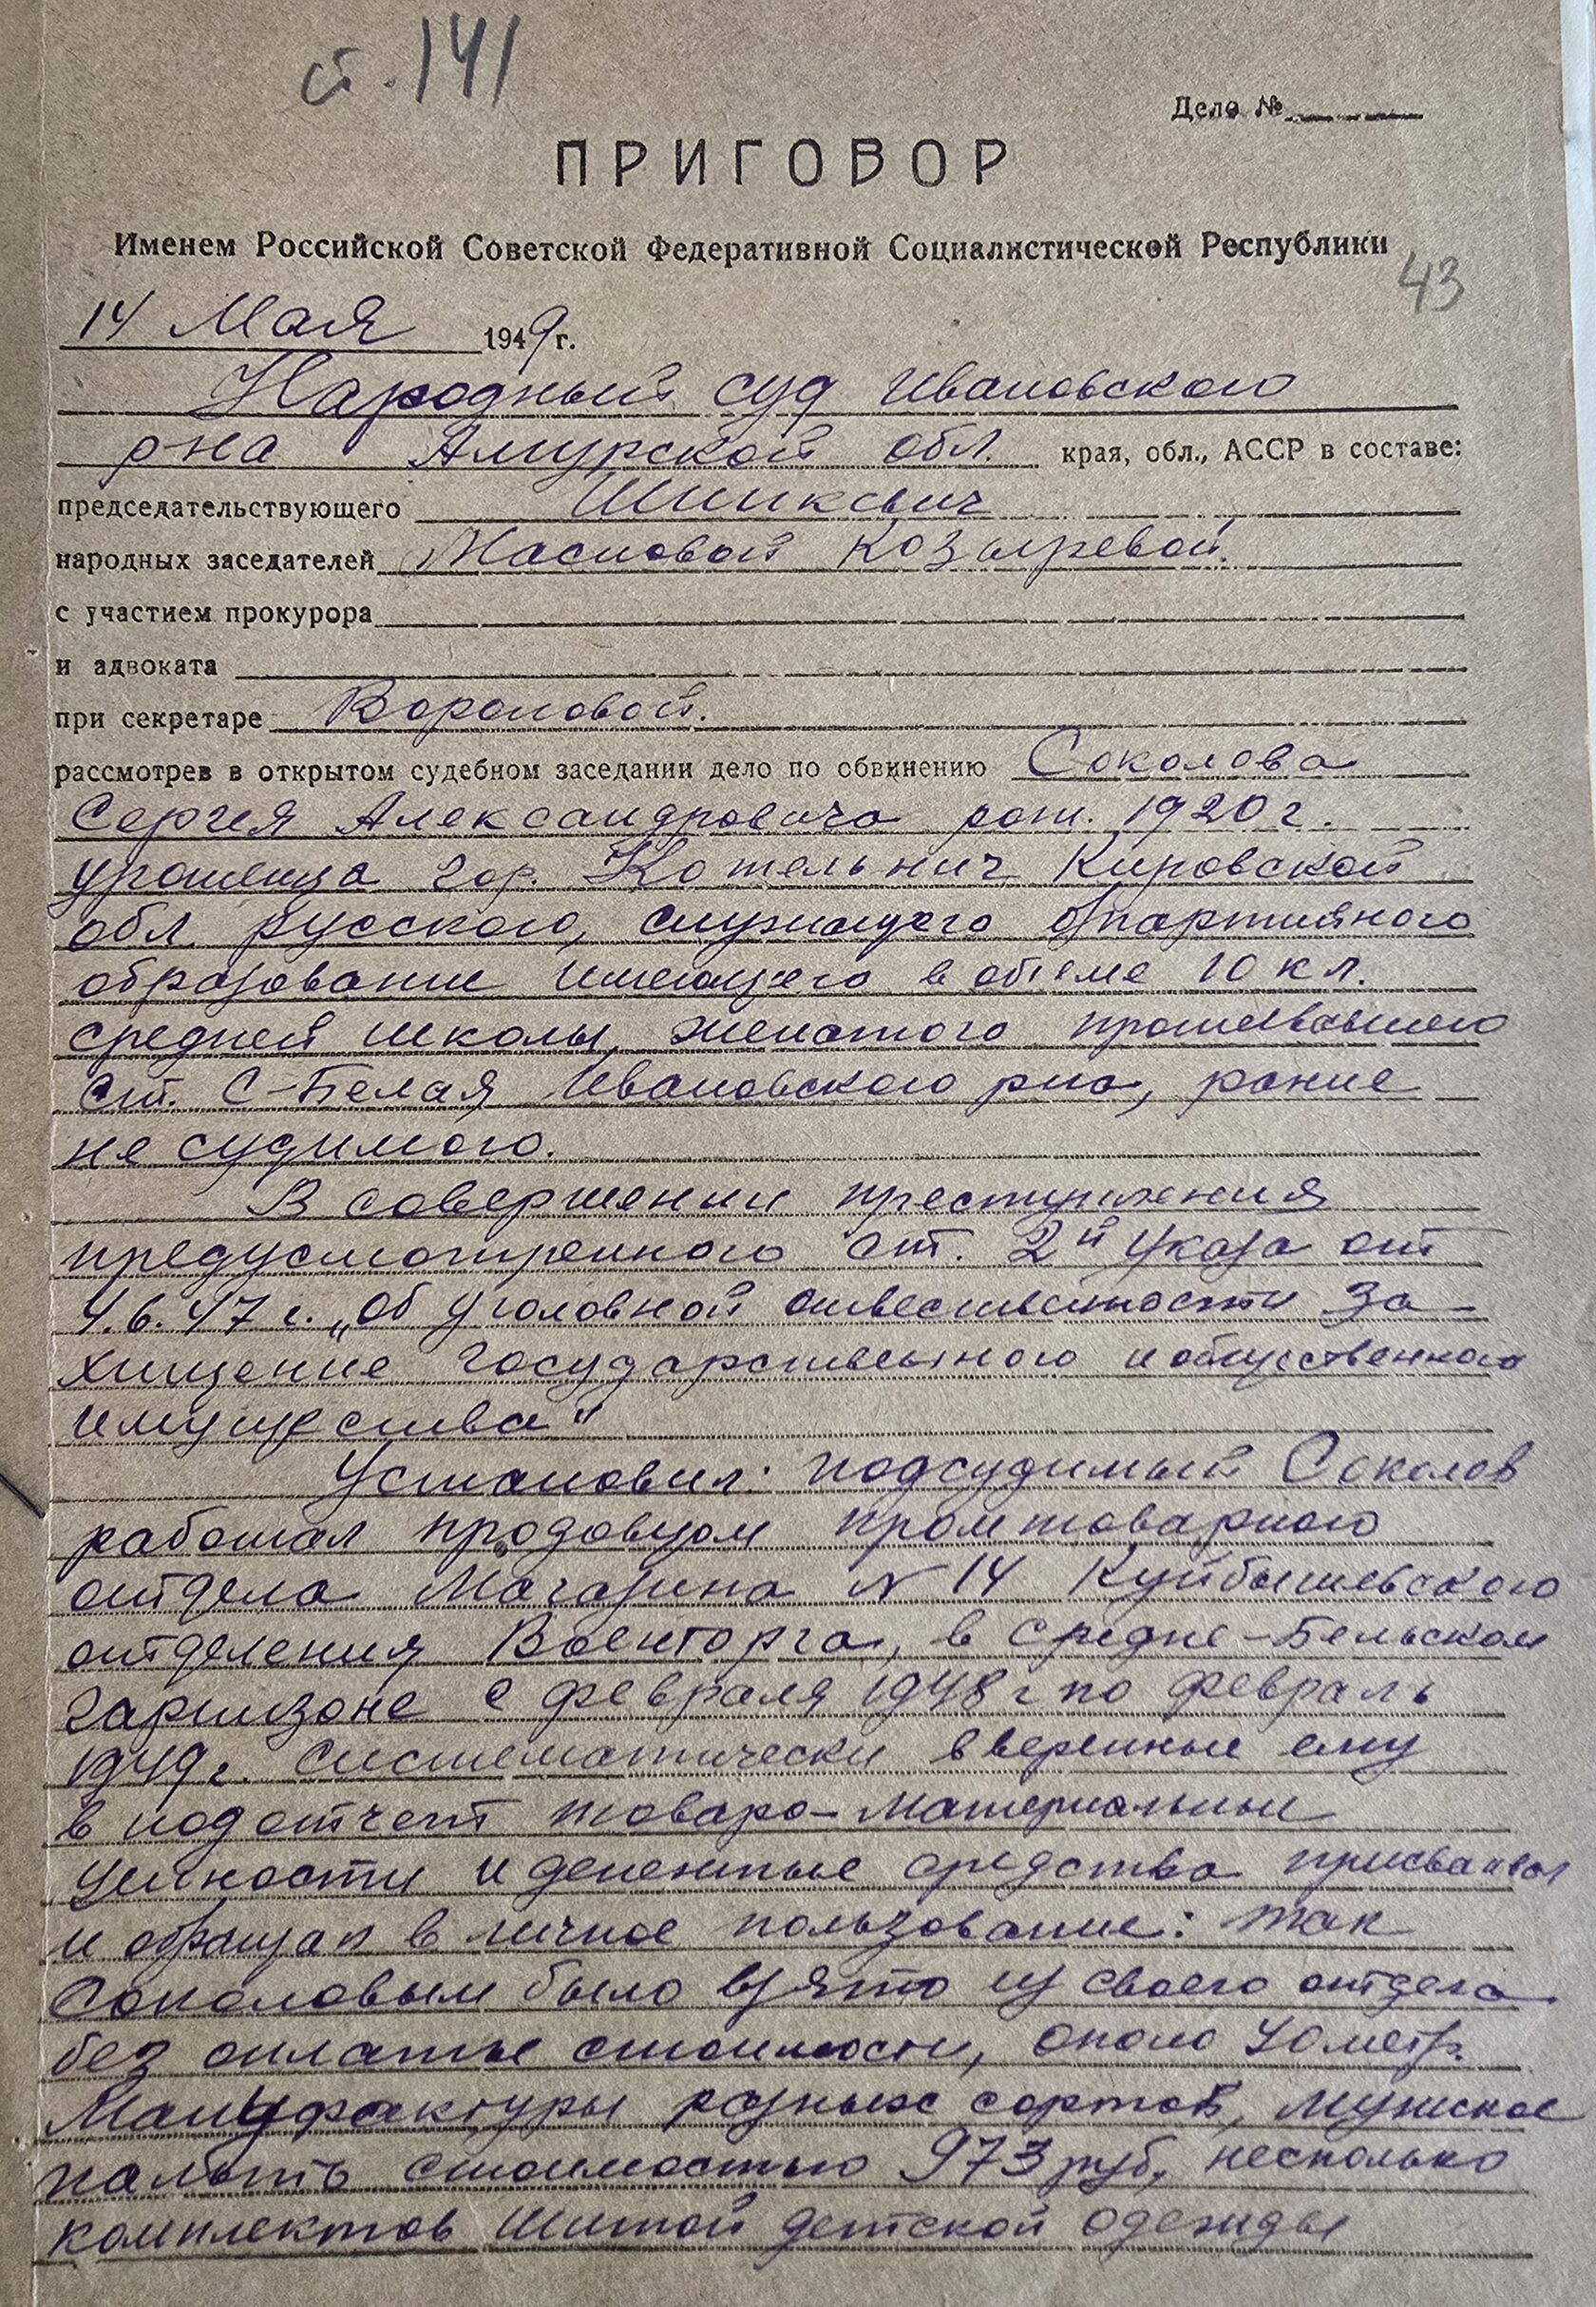 ст. 141
Дело №
ПРИГОВОР
Именем Российской Советской Федеративной Социалистической Республики
43
14 Мая 1949 г.
Народный суд Ивановского
р-на Амурской обл. края, обл., АССР в составе:
председательствующего Шинкевич
народных заседателей Масловой Козыревой.
с участием прокурора
и адвоката
при секретаре Вороновой.
рассмотрев в открытом судебном заседании дело по обвинению Соколова
Сергея Александровича рож. 1920 г.
уроженца гор. Котельнич Кировской
обл. русского, служащего б/партийного
образование имеющего в объеме 10 кл.
средней школы, женатого проживавшего
ст. С-Белая Ивановского рна, ранее
не судимого.
В совершении преступления
предусмотренного ст. 2й Указа от
4.6.47 г. „Об уголовной ответственности за
хищение государственного и общественного
имущества"
Установил: подсудимый Соколов
работал продавцом промтоварного
отдела Магазина N 14 Куйбышевского
отделения Военторга, в Средне-Бельском
гарнизоне с февраля 1948 г по февраль
1949 г. систематически вверенные ему
в подотчет товаро-материальные
ценности и денежные средства присваивал
и обращал в личное пользование: так
Соколовым было взято из своего отдела
без оплаты стоимости, около 40 метр.
Мануфактуры разных сортов, мужское
пальто стоимостью 973 руб, несколько
комплектов шитой детской одежды